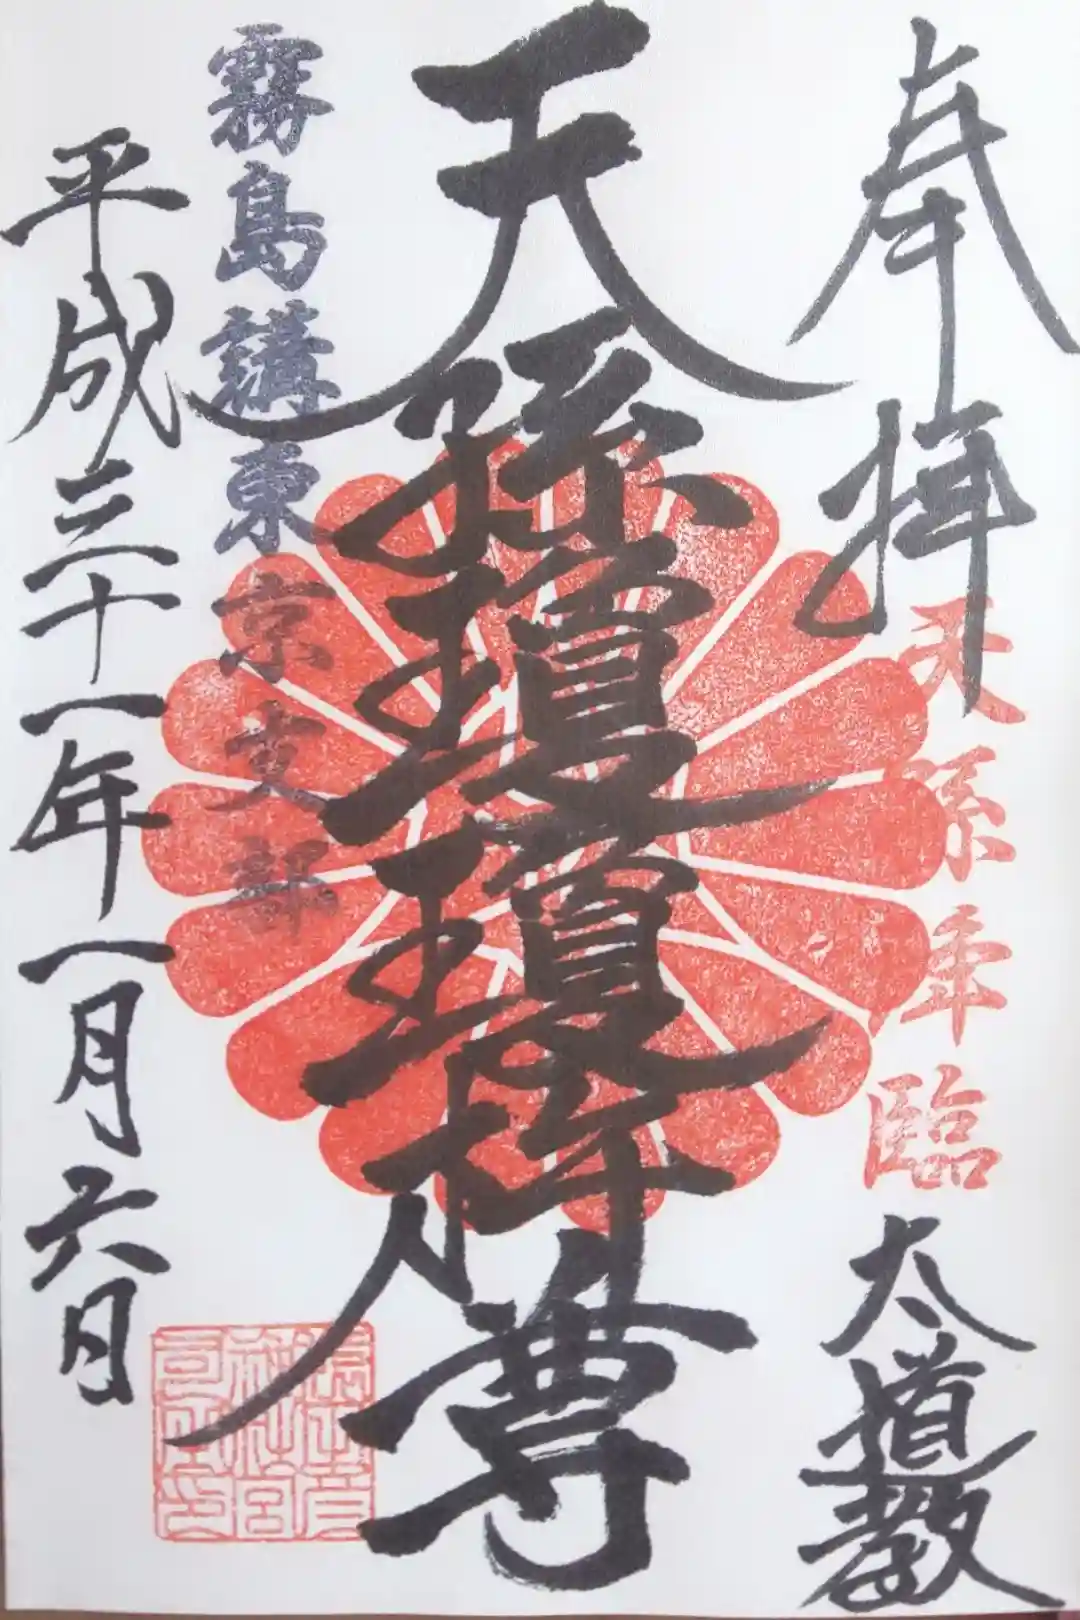 奉拝
天孫降臨
太道教
天孫瓊瓊杵尊
霧島講東京支部
平成三十一年一月六日